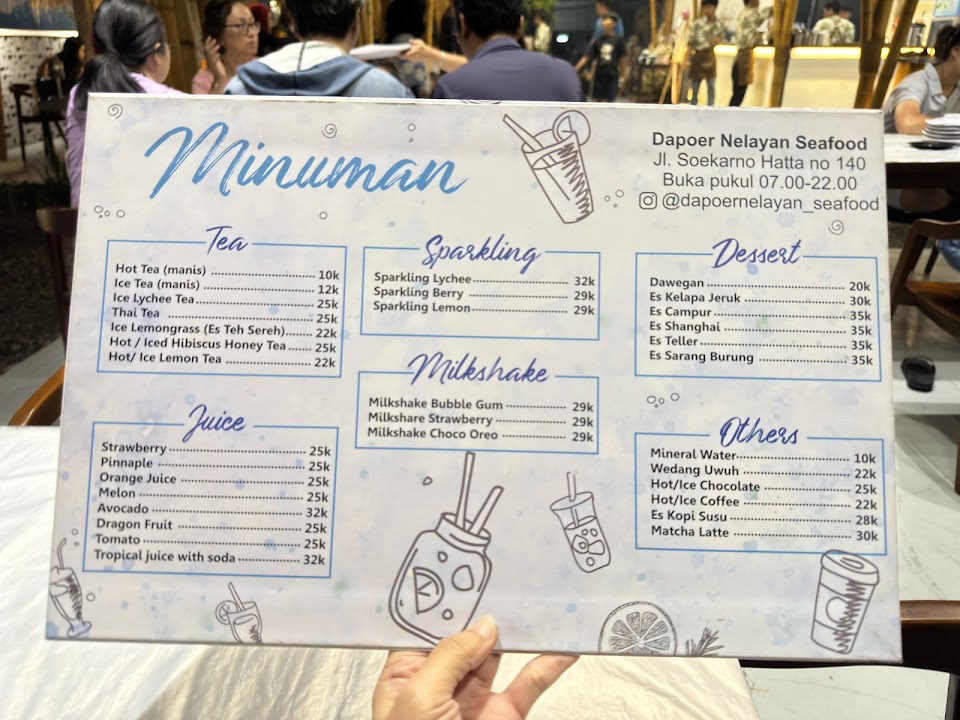 Minuman
Dapoer Nelayan Seafood
Jl. Soekarno Hatta no 140
Buka pukul 07.00-22.00
@dapoernelayan_seafood
Tea
Hot Tea (manis) 10k
Ice Tea (manis) 12k
Ice Lychee Tea 25k
Thai Tea 25k
Ice Lemongrass (Es Teh Sereh) 22k
Hot / Iced Hibiscus Honey Tea 25k
Hot/ Ice Lemon Tea 22k
Juice
Strawberry 25k
Pinnaple 25k
Orange Juice 25k
Melon 25k
Avocado 32k
Dragon Fruit 25k
Tomato 25k
Tropical juice with soda 32k
Sparkling
Sparkling Lychee 32k
Sparkling Berry 29k
Sparkling Lemon 29k
Milkshake
Milkshake Bubble Gum 29k
Milkshare Strawberry 29k
Milkshake Choco Oreo 29k
Dessert
Dawegan 20k
Es Kelapa Jeruk 30k
Es Campur 35k
Es Shanghai 35k
Es Teller 35k
Es Sarang Burung 35k
Others
Mineral Water 10k
Wedang Uwuh 22k
Hot/Ice Chocolate 25k
Hot/Ice Coffee 22k
Es Kopi Susu 28k
Matcha Latte 30k